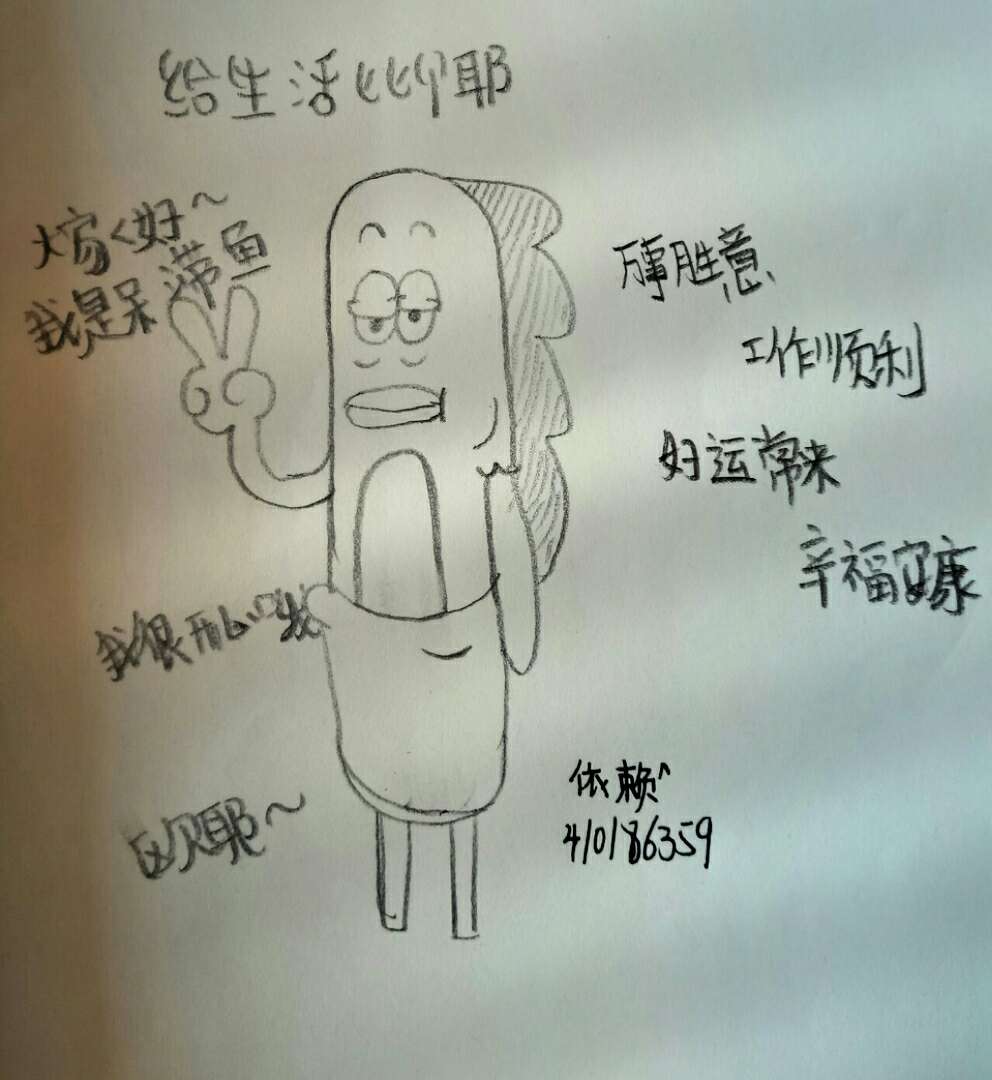 给生活比个耶
大家好~
我是呆滞鱼
万事胜意
工作顺利
好运常来
辛福安康
我很开心
欧耶~
依赖^
410186359